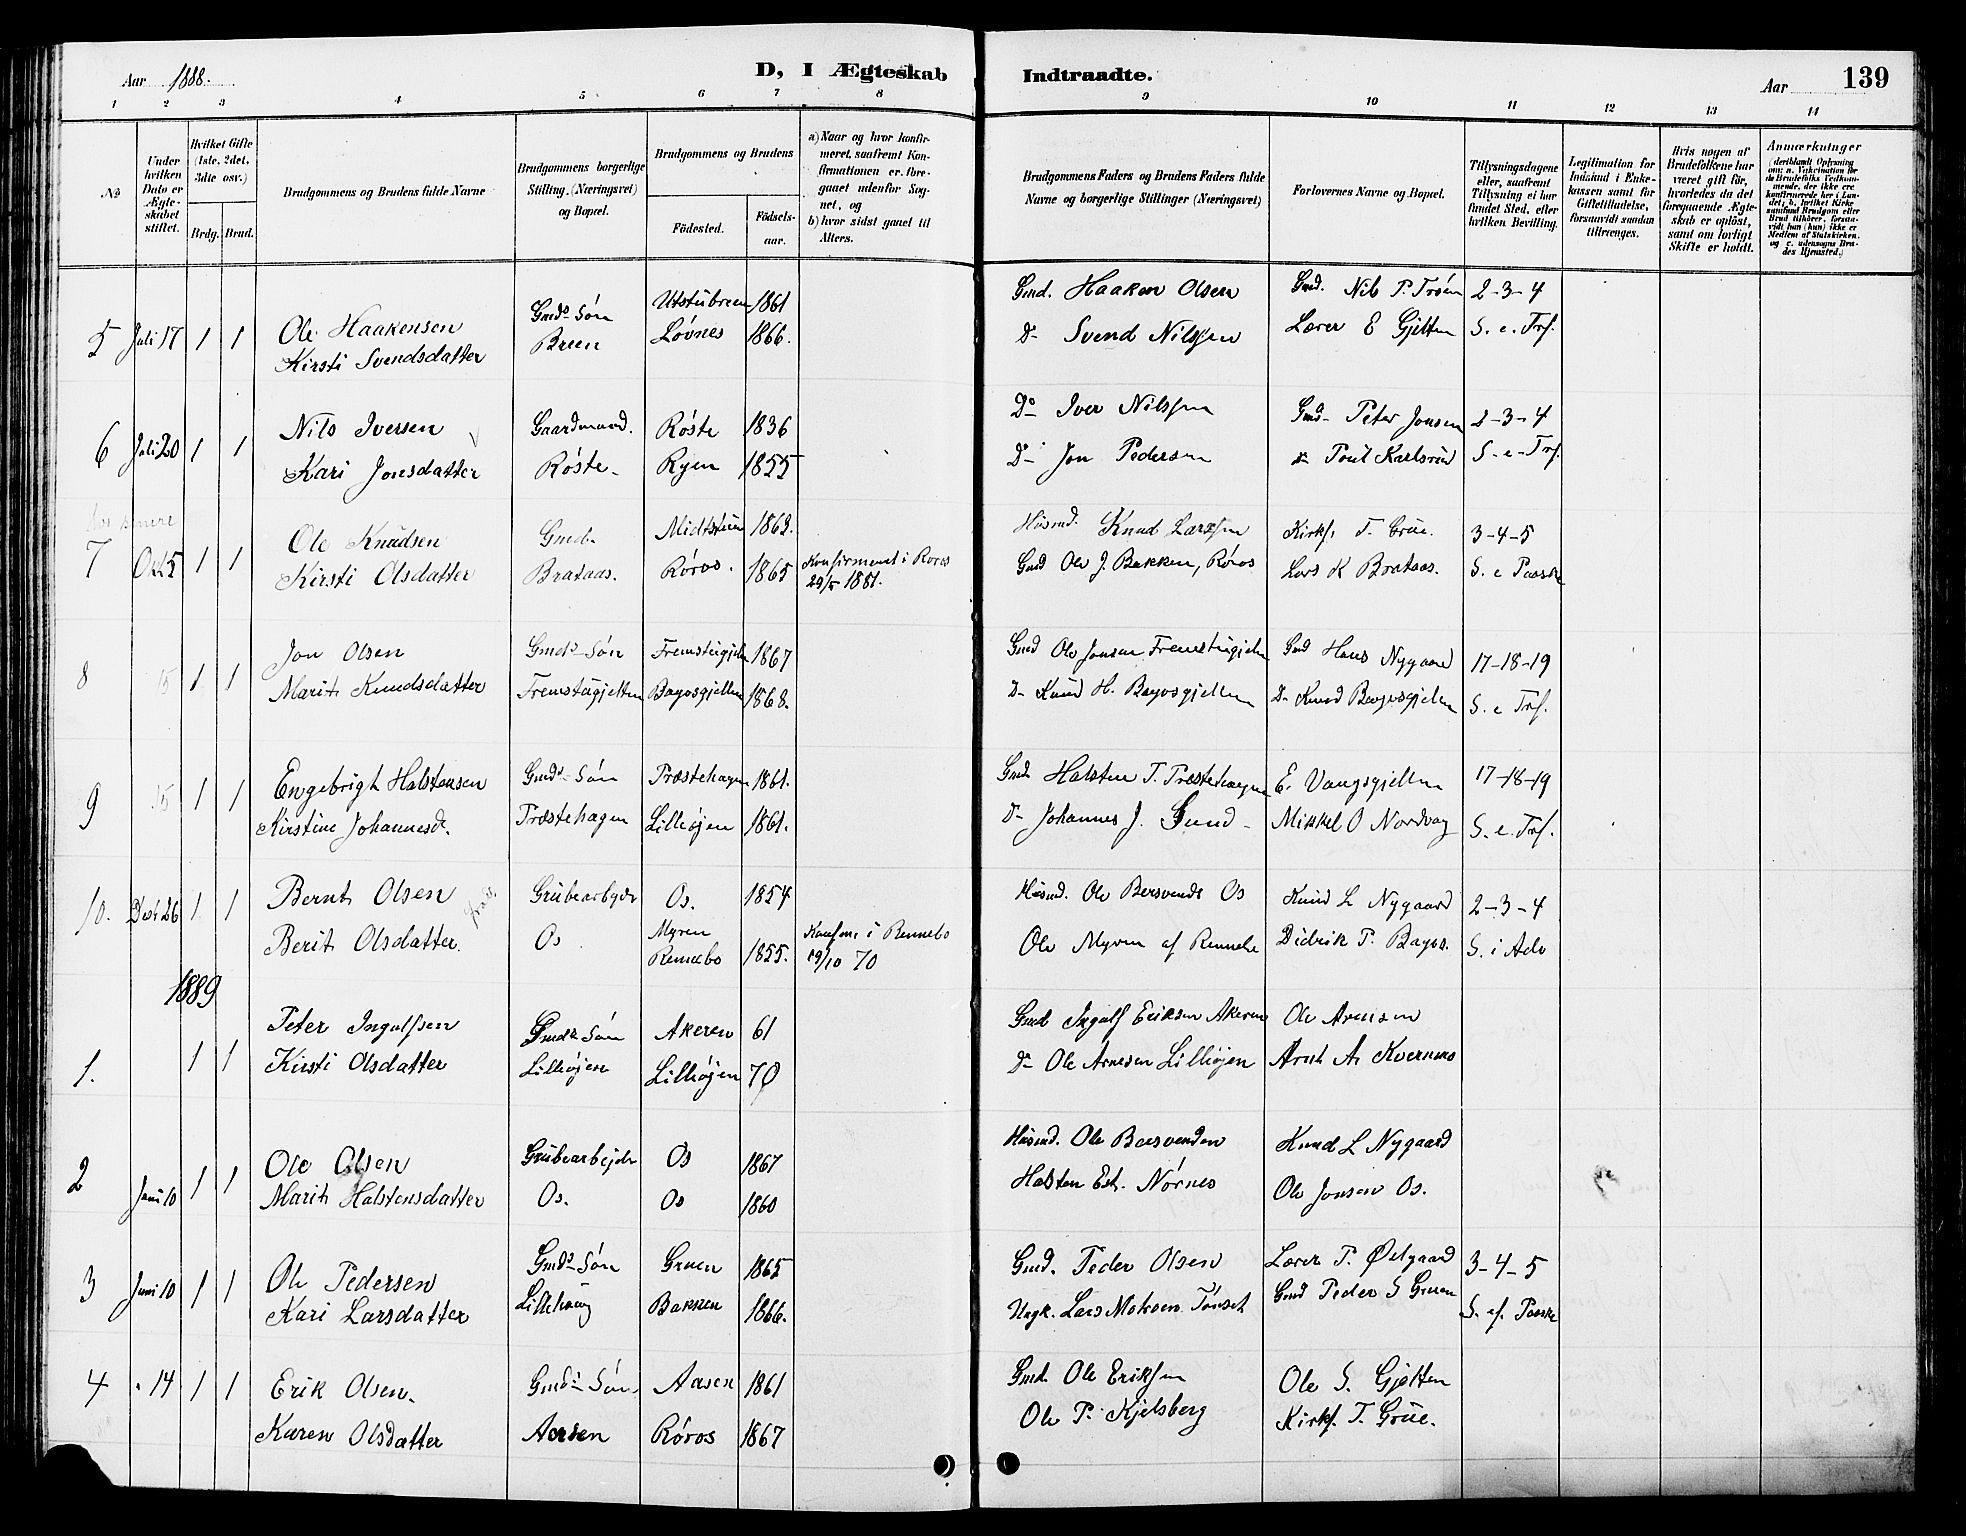 Aar 1888. D, I Ægteskab Indtraadte. Aar 139
1 2 3 4 5 6 7 8 9 10 11 12 13 14
No
Under hvilken Dato er Ægteskabet stiftet.
Hvilket Gifte (1ste, 2det, 3die osv.)
Brdg. Brud.
Brudgommens og Brudens fulde Navne
Brudgommens borgerlige Stilling. (Næringsvei) og Bopæl.
Brudgommens og Brudens
Fødested. Fødselsaar.
a) Naar og hvor konfirmeret, saafremt Konfirmationen er foregaaet udenfor Sognet, og
b) hvor sidst gaaet til Alters.
Brudgommens Faders og Brudens Faders fulde Navne og borgerlige Stillinger (Næringsvei)
Forlovernes Navne og Bopæl.
Tillysningsdagene eller, saafremt Tillysning ei har fundet Sted, efter hvilken Bevilling.
Legitimation for Indskud i Enkekassen samt for Giftetilladelse, forsaavidt saadan tiltrænges.
Hvis nogen af Brudefolkene har været gift før, hvorledes da det foregaaende Ægteskab er opløst, samt om lovligt Skifte er holdt.
Anmærkninger
5 Juli 17 1 1 Ole Haakensen Gmds Søn Utstubreen 1861 Gmd. Haaken Olsen Gmd. Nils P. Trøen 2-3-4
Kirsti Svendsdatter Breen Løvnes 1866. Do Svend Nilssen Lærer E Gjelten S. e. Trf.
6 Juli 20 1 1 Nils Iversen Gaardmand. Røste 1836 Do Iver Nilssen Gmd. Peter Jonsen 2-3-4
Kari Jonsdatter Røste Ryen 1855 Do Jon Pedersen S. e. Trf.
7 Okt 5 1 1 Ole Knudsen Gmd. Midtstuen 1863. Husmd. Knud Larssen Kirks. T. Grue. 3-4-5
Kirsti Olsdatter Brataas. Røros. 1865 Konfirmeret i Røros 29/5 1881. Gmd Ole J. Bakken, Røros Lars K Brataas. S. e Paaske
8 15 1 1 Jon Olsen Gmds Søn Fremstugjelten 1867 Gmd Ole Jonsen Fremstugjelten Gmd Hans Nygaard 17-18-19
Marit Knudsdatter Fremstugjelten Bagosgjelten 1868. Do Knud H. Bagosgjelten Do Knud Bagosgjelten S. e Trf.
9 15 1 1 Engebrigt Halstensen Gmds Søn Præstehagen 1861. Gmd. Halsten T. Præstehagen E. Vangsgjelten 17-18-19
Kirstine Johannesd. Præstehagen Lilleøjen 1861. Do Johannes J. Sund Mikkel O Nordvog S. e. Trf.
10. Dest 26 1 1 Bernt Olsen Grubearbejder Os. 1854 Husmd. Ole Bersvends Os Knud L Nygaard 2-3-4
Berit Olsdatter. Os Myren Rennebo 1855. Konfirm i Rennebo 19/10 70 Ole Myren af Rennebo Didrik P. Bagos. S. i Adv
1889
1. 1 1 Peter Ingolfsen Gmds Søn Akeren 61 Gmd Ingolf Eriksen Akeren Ole Arnesen
Kirsti Olsdatter Lilleøjen Lilleøjen 70 Do Ole Arnesen Lilleøjen Arnt A. Kvernnes
2 Juni 10 1 1 Ole Olsen Grubearbejder Os 1867 Husmd. Ole Baersvenden Knud L Nygaard
Marit Halstensdatter Os. Os 1860 Halsten Est. Nørnes Ole Jonsen Os.
3 Juni 10 1 1 Ole Pedersen Gmds Søn Gruen 1865 Gmd. Peder Olsen Lærer P. Østgaard 3-4-5
Kari Larsdatter Bakken 1866. Ungk. Lars Moksen Tønset Gmd Peder S Gruen S. ef. Paaske
4 " 14 1 1 Erik Olsen. Gmds Søn Aasen 1861 Gmd. Ole Eriksen Ole S. Gjelten
Karen Olsdatter Aasen Røros 1867 Ole P. Kjelsberg Kirks. T. Grue.